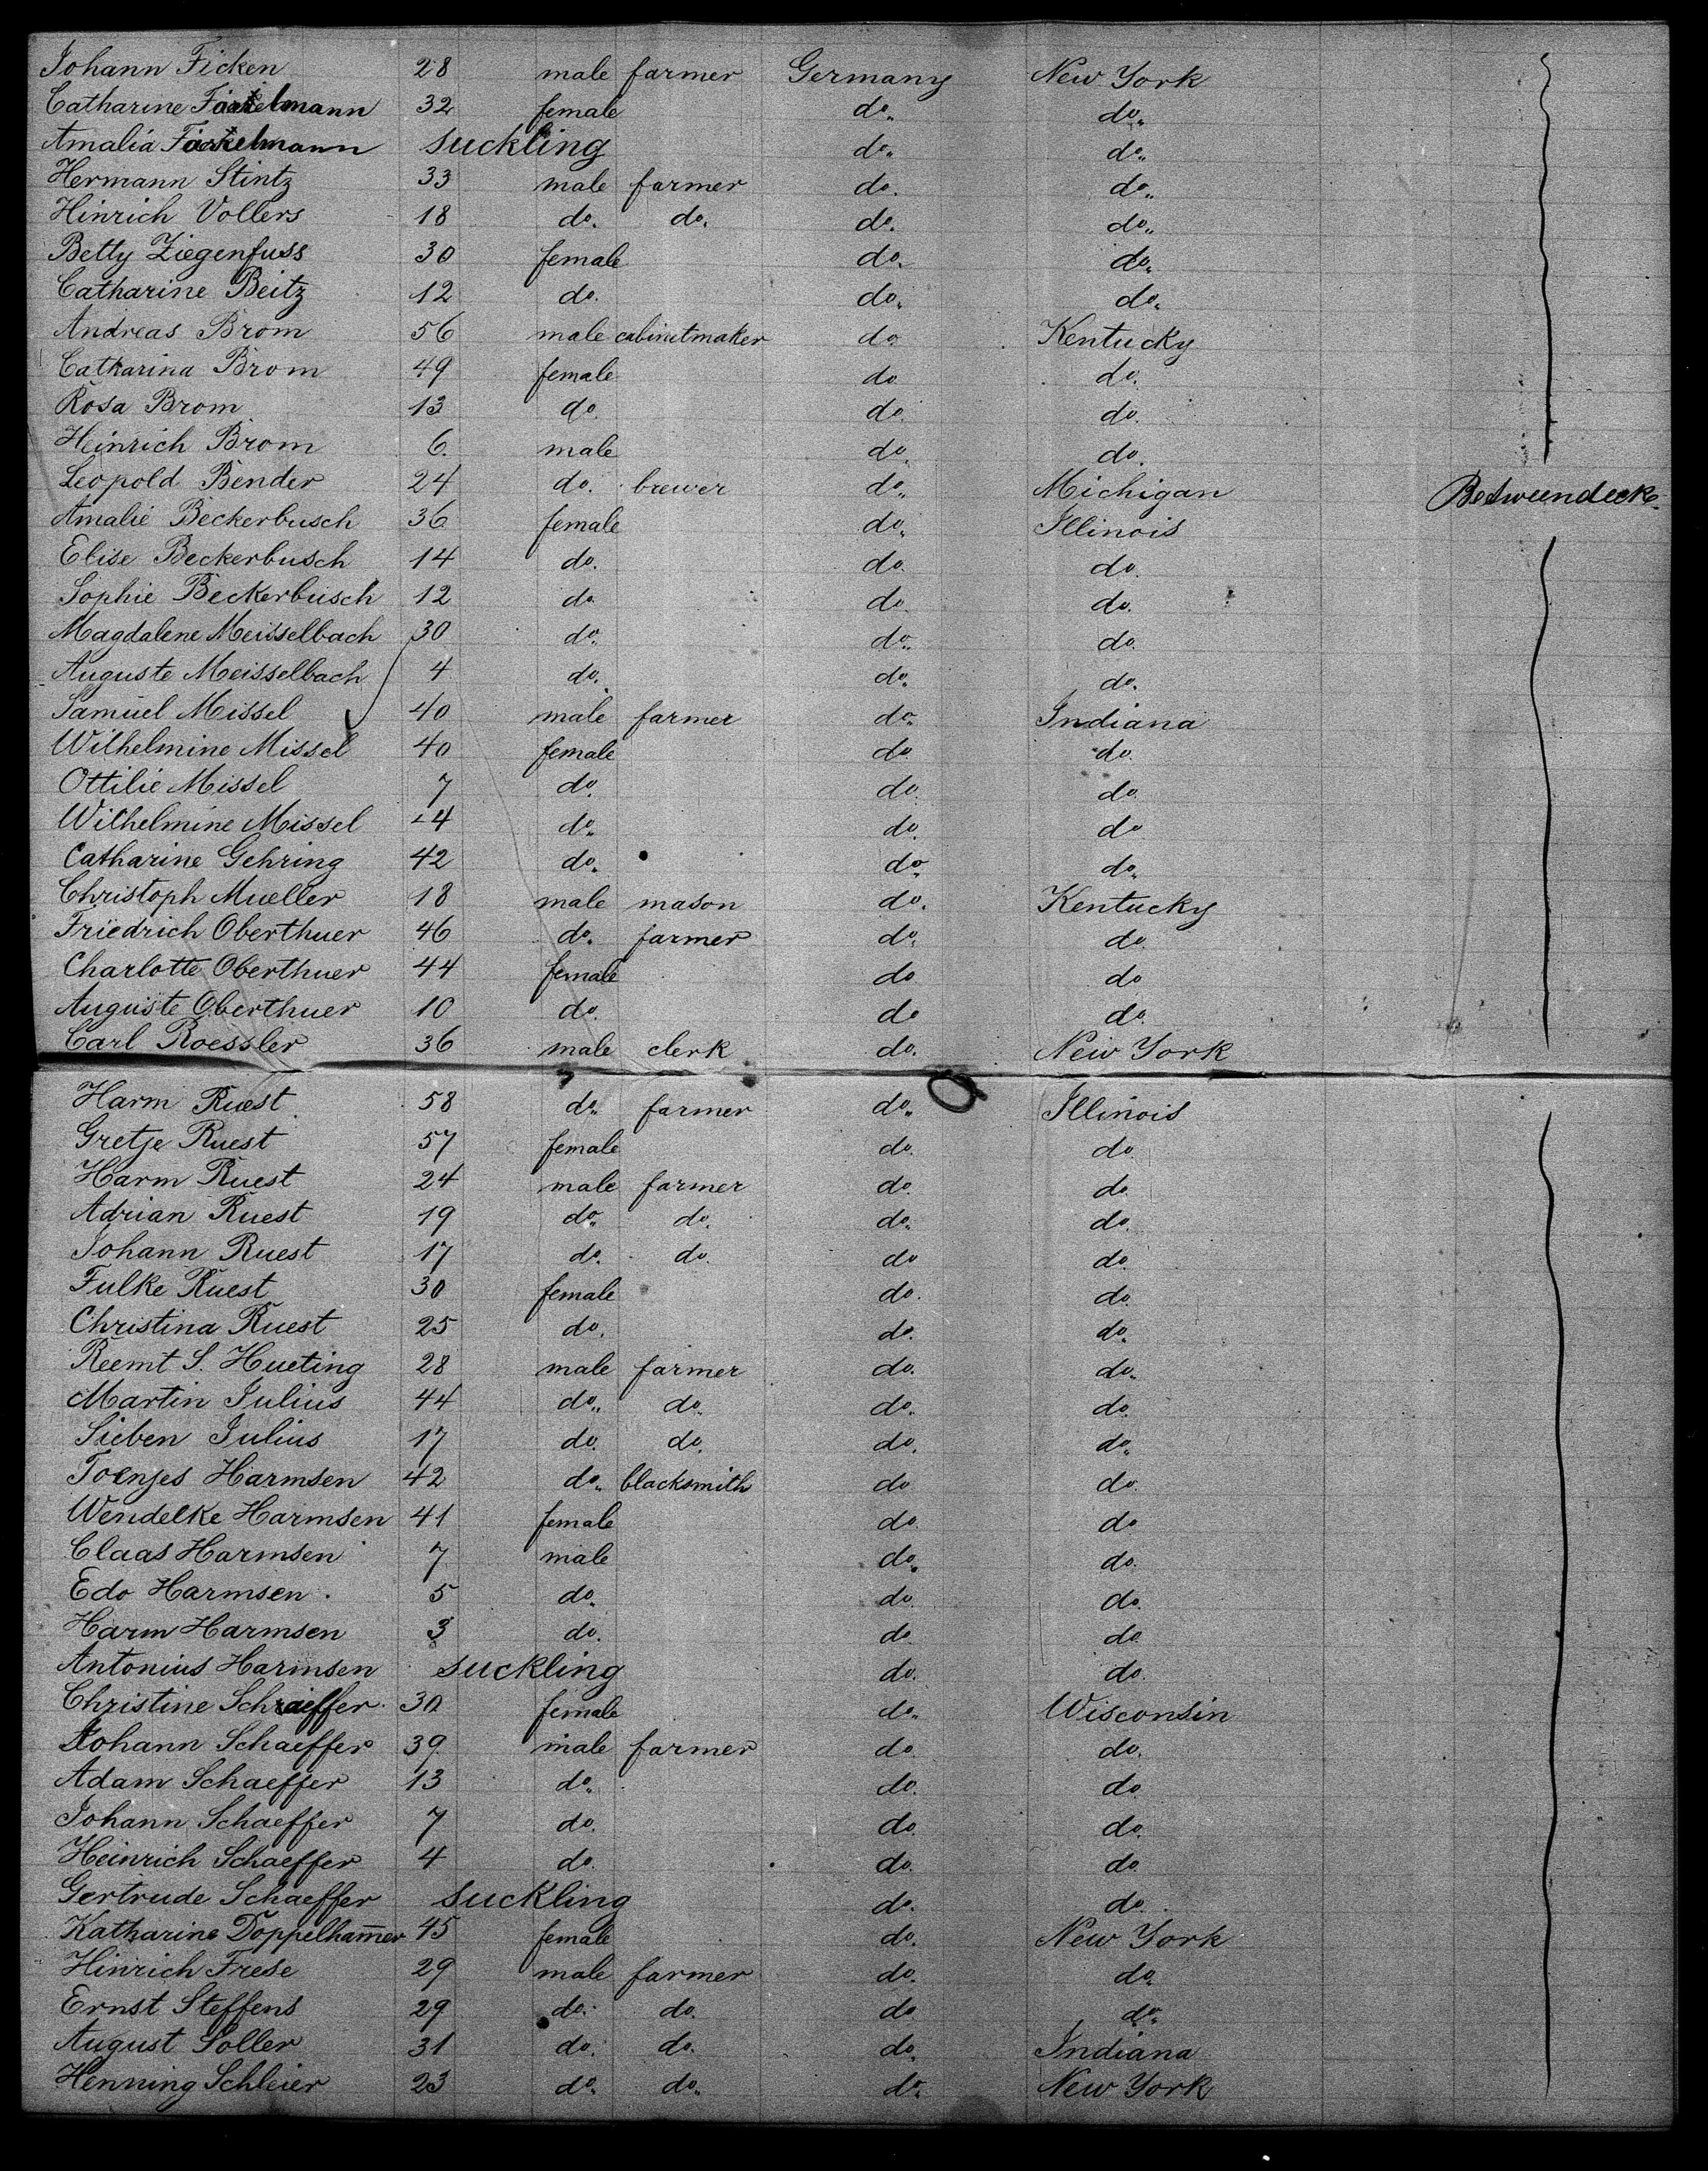 Johann Ficken 28 male farmer Germany New York
Catharine 32 female do. do.
Amalia suckling do. do.
Hermann Stintz 33 male farmer do. do.
Hinrich Vollers 18 do. do. do. do.
Betty Ziegenfuss 30 female do. do.
Catharine Beitz 12 do. do. do.
Andreas Brom 56 male cabinetmaker do. Kentucky
Catharina Brom 49 female do. do.
Rosa Brom 13 do. do. do.
Heinrich Brom 6. male do. do.
Leopold Bender 24 do. brewer do. Michigan Betweendeck
Amalie Beckerbusch 36 female do. Illinois
Elise Beckerbusch 14 do. do. do.
Sophie Beckerbusch 12 do. do. do.
Magdalene Meisselbach 30 do. do. do.
Auguste Meisselbach 4 do. do. do.
Samuel Missel 40 male farmer do. Indiana
Wilhelmine Missel 40 female do. do.
Ottilie Missel 7 do. do. do.
Wilhelmine Missel 4 do. do. do
Catharine Gehring 42 do. do. do.
Christoph Mueller 18 male mason do. Kentucky
Friedrich Oberthuer 46 do. farmer do. do.
Charlotte Oberthuer 44 female do do
Auguste Oberthuer 10 do. do do.
Carl Roessler 36 male clerk do. New York
Harm Ruest 58 do. farmer do. Illinois
Gretje Ruest 57 female do. do.
Harm Ruest 24 male farmer do. do.
Adrian Ruest 19 do. do. do. do.
Johann Ruest 17 do. do. do do.
Fulke Ruest 30 female do. do.
Christina Ruest 25 do. do. do.
Reemt S. Hueting 28 male farmer do. do.
Martin Julius 44 do. do. do. do.
Sieben Julius 17 do. do. do. do.
Toenjes Harmsen 42 do. blacksmith do do.
Wendelke Harmsen 41 female do. do
Claas Harmsen 7 male do. do.
Edo Harmsen 5 do. do. do.
Harm Harmsen 3 do. do. do.
Antonius Harmsen suckling do. do.
Christine 30 female do. Wisconsin
Johann Schaeffer 39 male farmer do. do.
Adam Schaeffer 13 do. do. do.
Johann Schaeffer 7 do. do. do.
Heinrich Schaeffer 4 do. do. do.
Gertrude Schaeffer suckling do. do.
Katharine Doppelham̅er 45 female do. New York
Hinrich Frese 29 male farmer do. do.
Ernst Steffens 29 do. do. do do.
August Soller 31 do. do. do. Indiana
Henning Schleier 23 do. do. do. New York